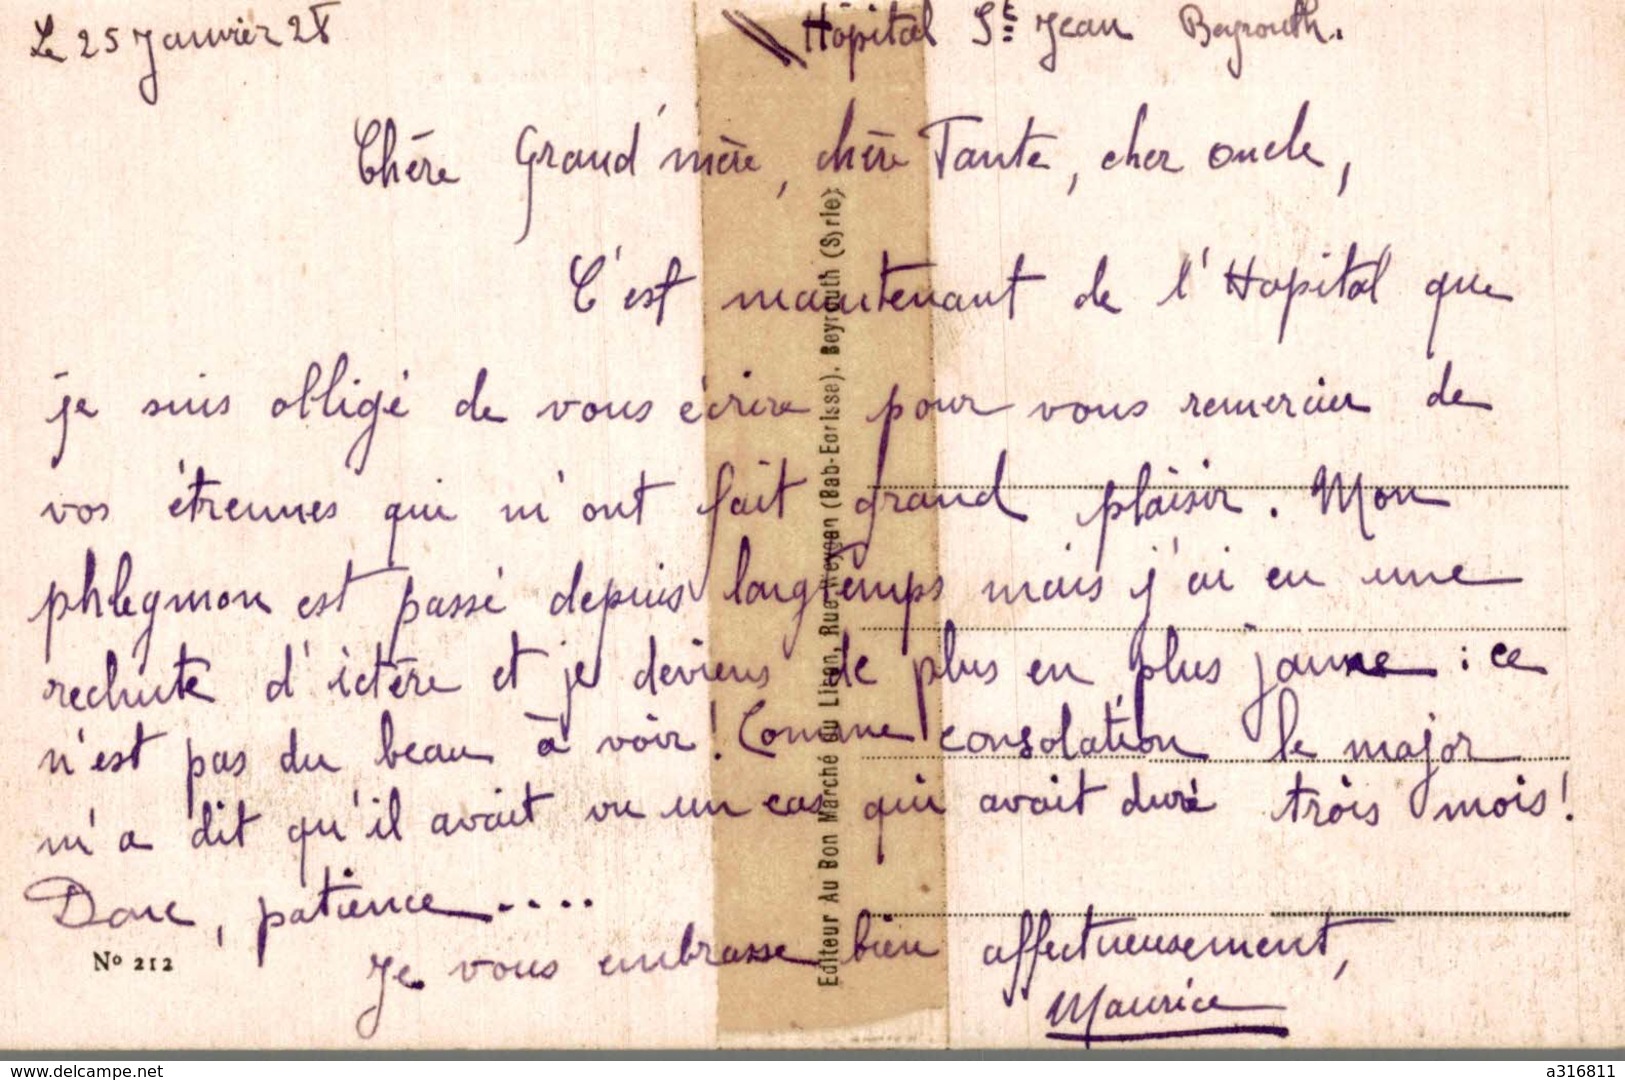 Le 25 Janvier 28
Hôpital St Jean Beyrouth.
Chère Grand'mère, chère Tante, cher oncle,
C'est maintenant de l'Hopital que
je suis obligé de vous écrire pour vous remercier de
vos étrennes qui m'ont fait grand plaisir. Mon
phlegmon est passé depuis longtemps mais j'ai eu une
rechute d'ictère et je deviens de plus en plus jaune : ce
n'est pas du beau à voir ! Comme consolation le major
m'a dit qu'il avait vu un cas qui avait duré trois mois !
Donc, patience.....
Je vous embrasse bien affectueusement,
Maurice
No 212
Editeur Au Bon Marché du Liban, Rue Weygan (Bab-Edrisse). Beyrouth (Syrie)
delcampe.net
a316811